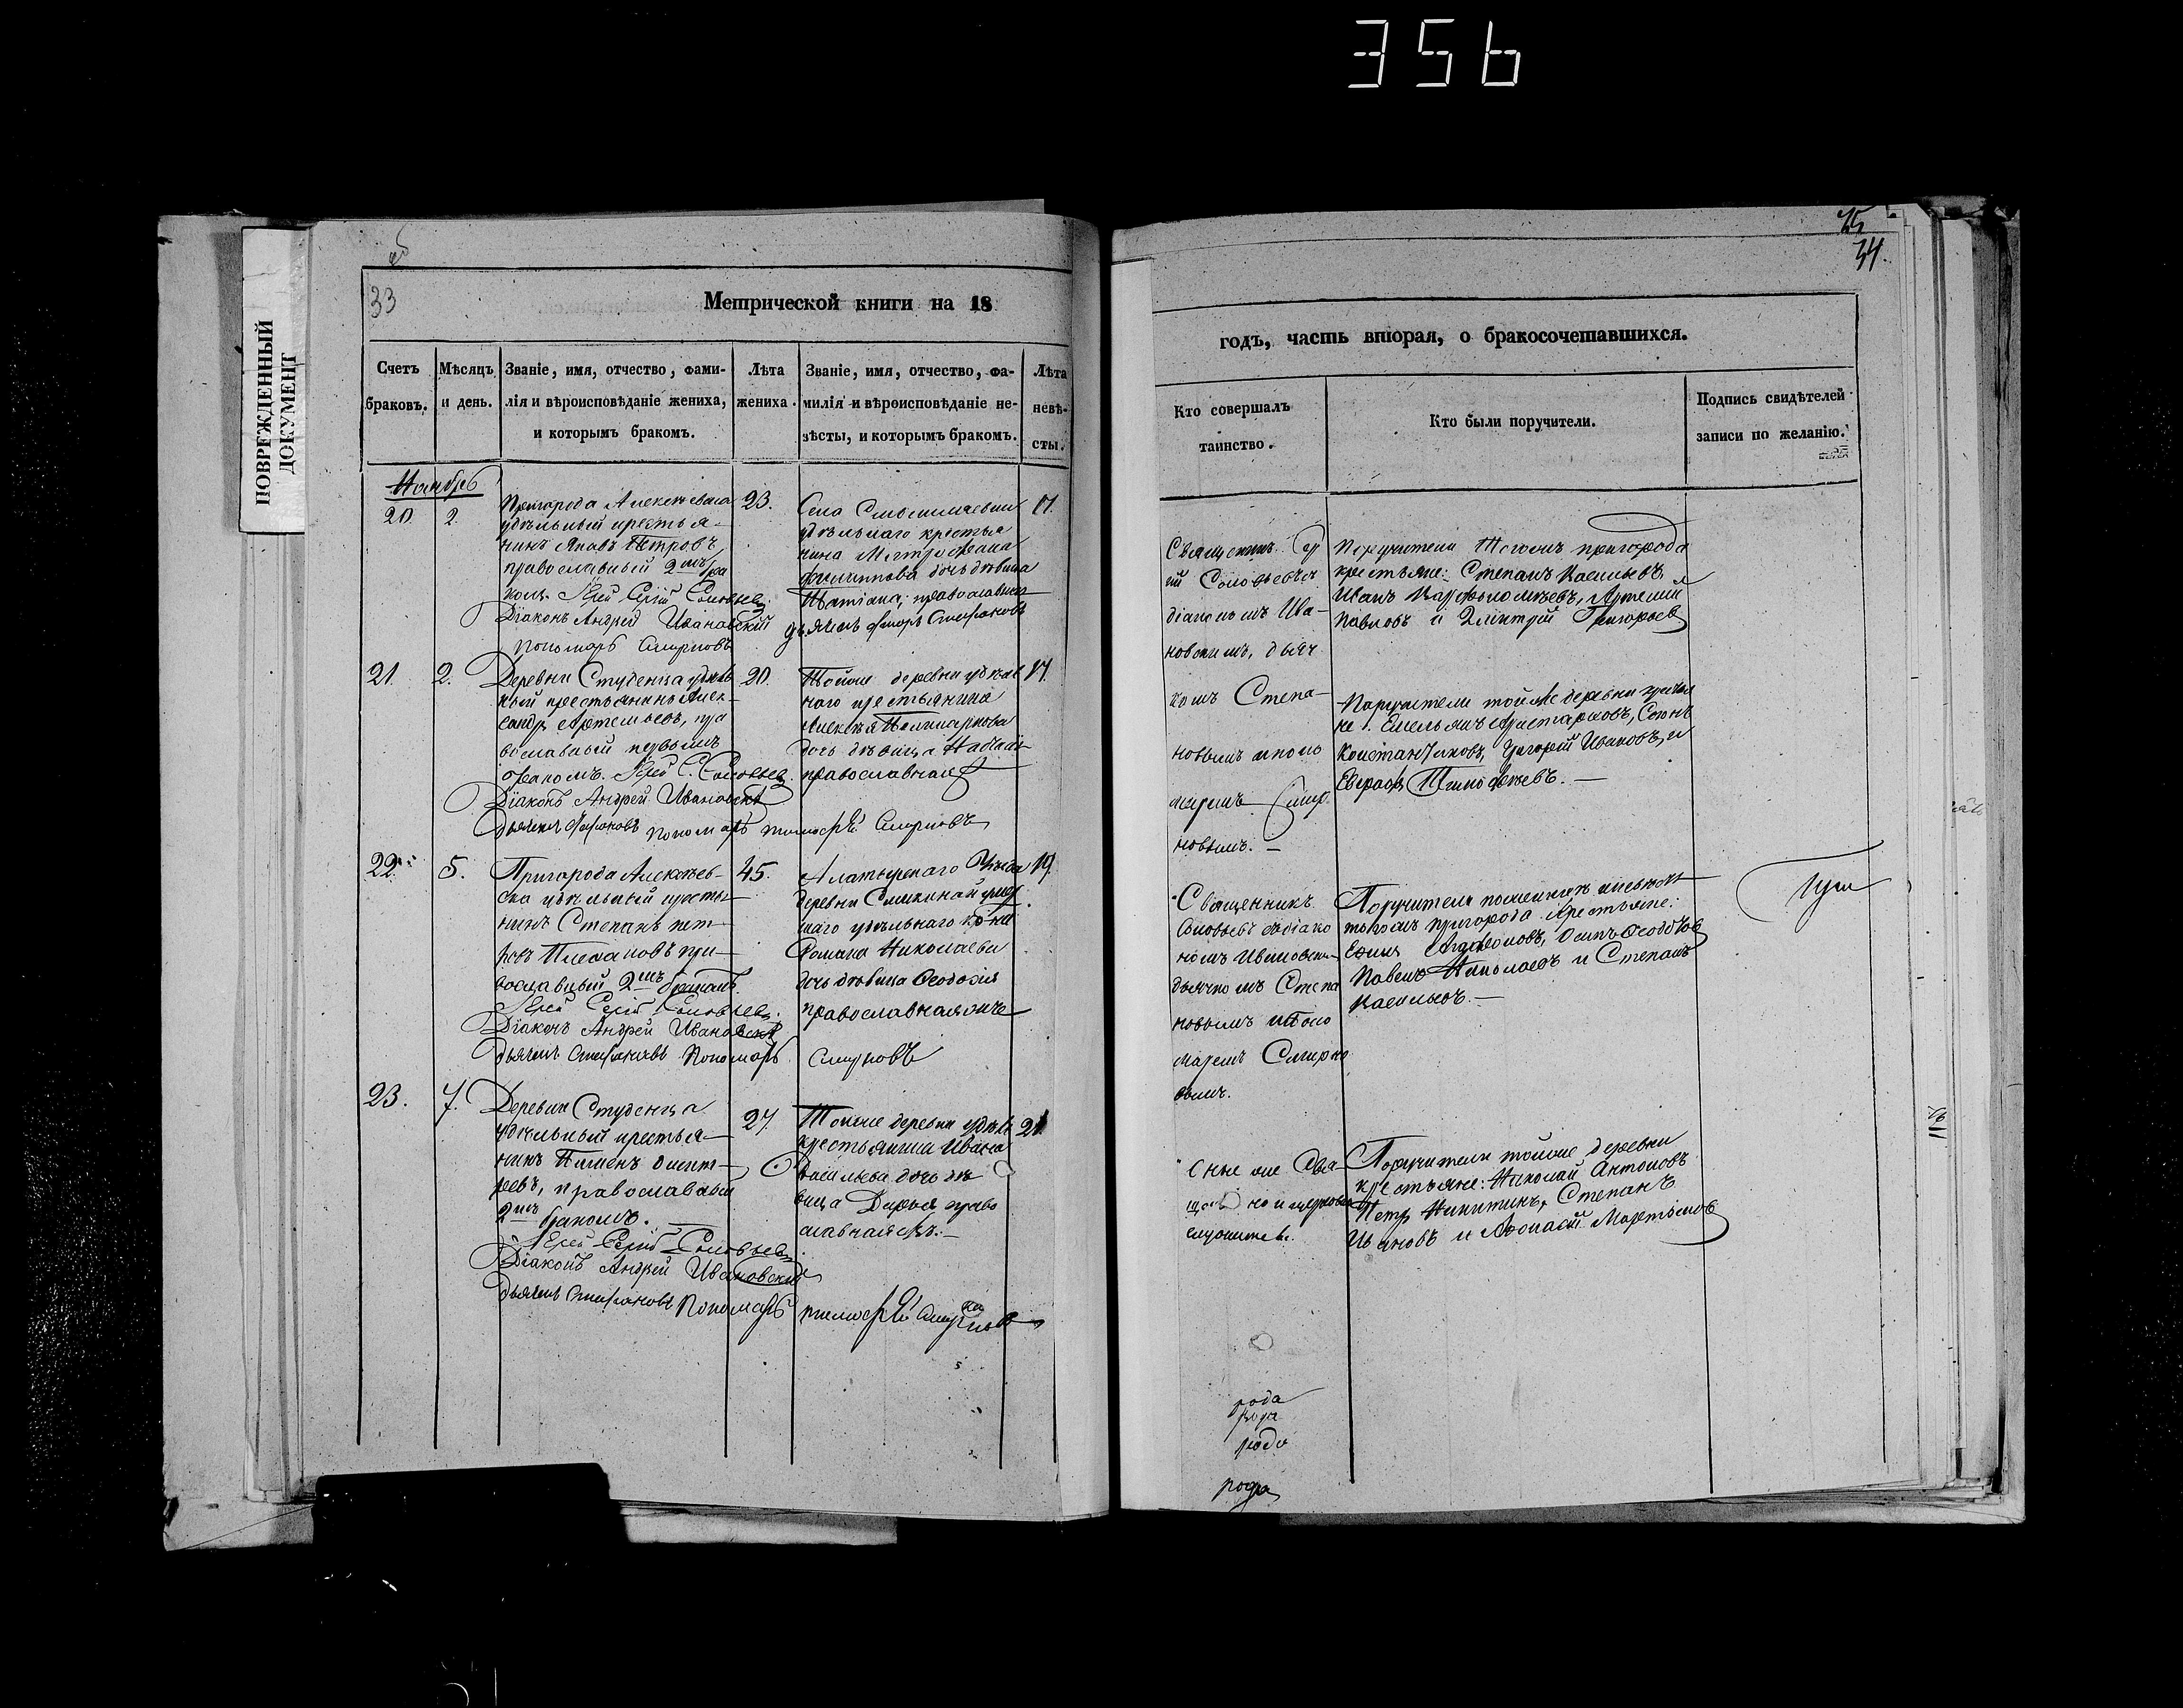 356
ПОВРЕЖДЕННЫЙ
ДОКУМЕНТ
33
Метрической книги на 18
Счетъ
браковъ.
Мѣсяцъ
и день.
Званіе, имя, отчество, фами-
лія и вѣроисповѣданіе жениха,
и которымъ бракомъ.
Лѣта
жениха.
Званіе, имя, отчество, фа-
милія и вѣроисповѣданіе не-
вѣсты, и которымъ бракомъ.
Лѣта
невѣ-
сты.
Ноябрь
20
2.
Пригорода Алексѣевска
удѣльный крестья-
нинъ Яковъ Петровъ
православный 2мъ бра
комъ. Іерей Сергій Соловьевъ
Діаконъ Андрей Ивановскій
Пономарь Смирновъ
23.
Села
удѣльнаго крестья
нина Митрофана
Филиппова дочь дѣвица
Татіана, православная
дьячекъ Степановъ
17.
21.
2.
Деревни Студенца удѣль
ный крестьянинъ Алек-
сандр Артемьевъ, пра
вославный первымъ
бракомъ. Іерей С. Соловьевъ.
Діаконъ Андрей Ивановскій
дьячекъ Степановъ Пономарь Тимофей Смирновъ
20.
Тойже деревни удѣль
наго крестьянина
Алексѣя
дочь дѣвица
православная
17.
22.
5.
Пригорода Алексѣев-
ска удѣльный кресть-
нинъ Степанъ Пет-
ровъ пра-
вославный 2мъ бракомъ.
Іерей Сергій Соловьевъ.
Діаконъ Андрей Ивановскій
дьячекъ Степановъ Пономарь Смирновъ
45.
Алатырскаго Уѣзда
деревни
шаго удѣльнаго
Романа Николаева
дочь дѣвица Ѳеодосія
православная
19.
23.
7.
Деревни Студенца
удѣльный крестья-
нинъ Пименъ Дмит-
ріевъ, православный
2мъ бракомъ.
Іерей Сергій Соловьевъ.
Діаконъ Андрей Ивановскій
дьячекъ Степановъ Пономарь Тимофей
27
Тойже деревни удѣль
крестьянина Ивана
Васильева дочь дѣ
вица Дарья право
славная
21.
34.
годъ, часть вторая, о бракосочетавшихся.
Кто совершалъ
таинство.
Кто были поручители.
Подпись свидѣтелей
записи по желанію.
Священникъ Сер
гій Соловьевъ съ
діакономъ Ива-
новскимъ, дьяч
комъ Степа-
новымъ и поно
маремъ Смир
новымъ. —
Поручители Тогожъ пригорода
крестьяне: Степанъ Васильевъ,
Иванъ Варфоломѣевъ, Артемій
Павловъ и Дмитрій Григорьевъ
Поручители тойже деревни крестья
не: Емельянъ Аристарховъ, Семенъ
Константиновъ, Григорій Ивановъ, и
Евграфъ Тимофѣевъ. —
Священникъ
Соловьевъ съ діако
номъ Ивановским
дьячкомъ Степа
новымъ и Поно
маремъ Смирно
вымъ.
Поручители по женихѣ и невѣстѣ
тогожъ пригорода Крестьяне:
Ефимъ Агафоновъ, Осипъ
Павелъ Николаевъ и Степанъ
Васильевъ. —
Оные же Свя-
щенно и церковно
служители.
Поручители тойже деревни
крестьяне: Николай Антоновъ
Петръ Никитинъ, Степанъ
Ивановъ и Аѳанасій Мартыновъ
рода
рода
рода
рода